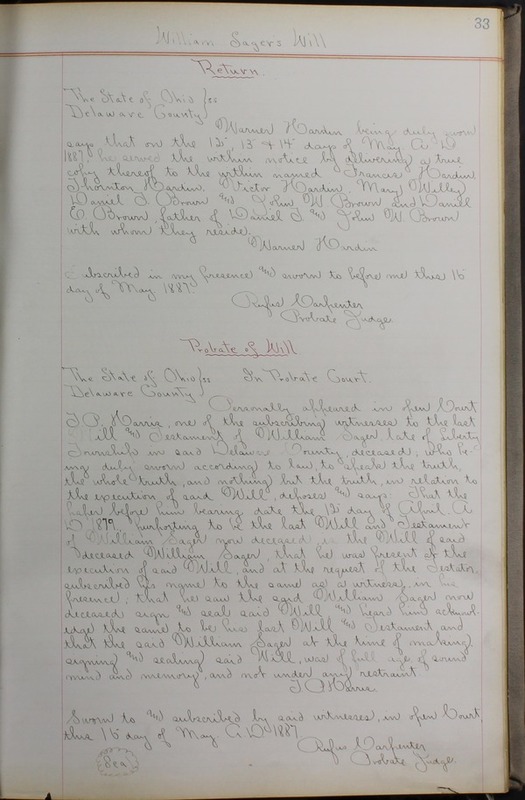 33
William Sagers Will
Return.
The State of Ohio } ss
Delaware County
Warner Hardin being duly sworn
says that on the 12" 13" & 14" days of May A. D
1887 he served the within notice by delivering a true
copy thereof to the within named Francis Hardin
Thornton Hardin, Victor Hardin, Mary Willey
Daniel T. Brown and John W Brown and Daniel
E Brown, father of Daniel T and John W Brown
with whom they reside.
Warner Hardin
Subscribed in my presence and sworn to before me this 16"
day of May 1887
Rufus Carpenter
Probate Judge.
Probate of Will
The State of Ohio } ss In Probate Court.
Delaware County
Personally appeared in open Court
Harris, one of the subscribing witnesses to the last
Will and Testament of William Sager, late of Liberty
Township in said Delaware County, deceased; who be-
ing duly sworn according to law, to speak the truth,
the whole truth, and nothing but the truth, in relation to
the execution of said Will, deposes and says: That the
paper before him bearing date the 12" day of April A
D 1879, purporting to be the last Will and Testament
of William Sager now deceased is the Will of said
deceased William Sager, that he was present at the
execution of said Will, and at the request of the Testator,
subscribed his name to the same as a witness, in his
presence; that he saw the said William Sager now
deceased sign and seal said Will and heard him acknowl-
edge the same to be his last Will and Testament and
that the said William Sager at the time of making
signing and sealing said Will, was of full age of sound
mind and memory, and not under any restraint
Harris.
Sworn to and subscribed by said witnesses, in open Court,
this 16 day of May A. D 1887
Rufus Carpenter
Seal Probate Judge.